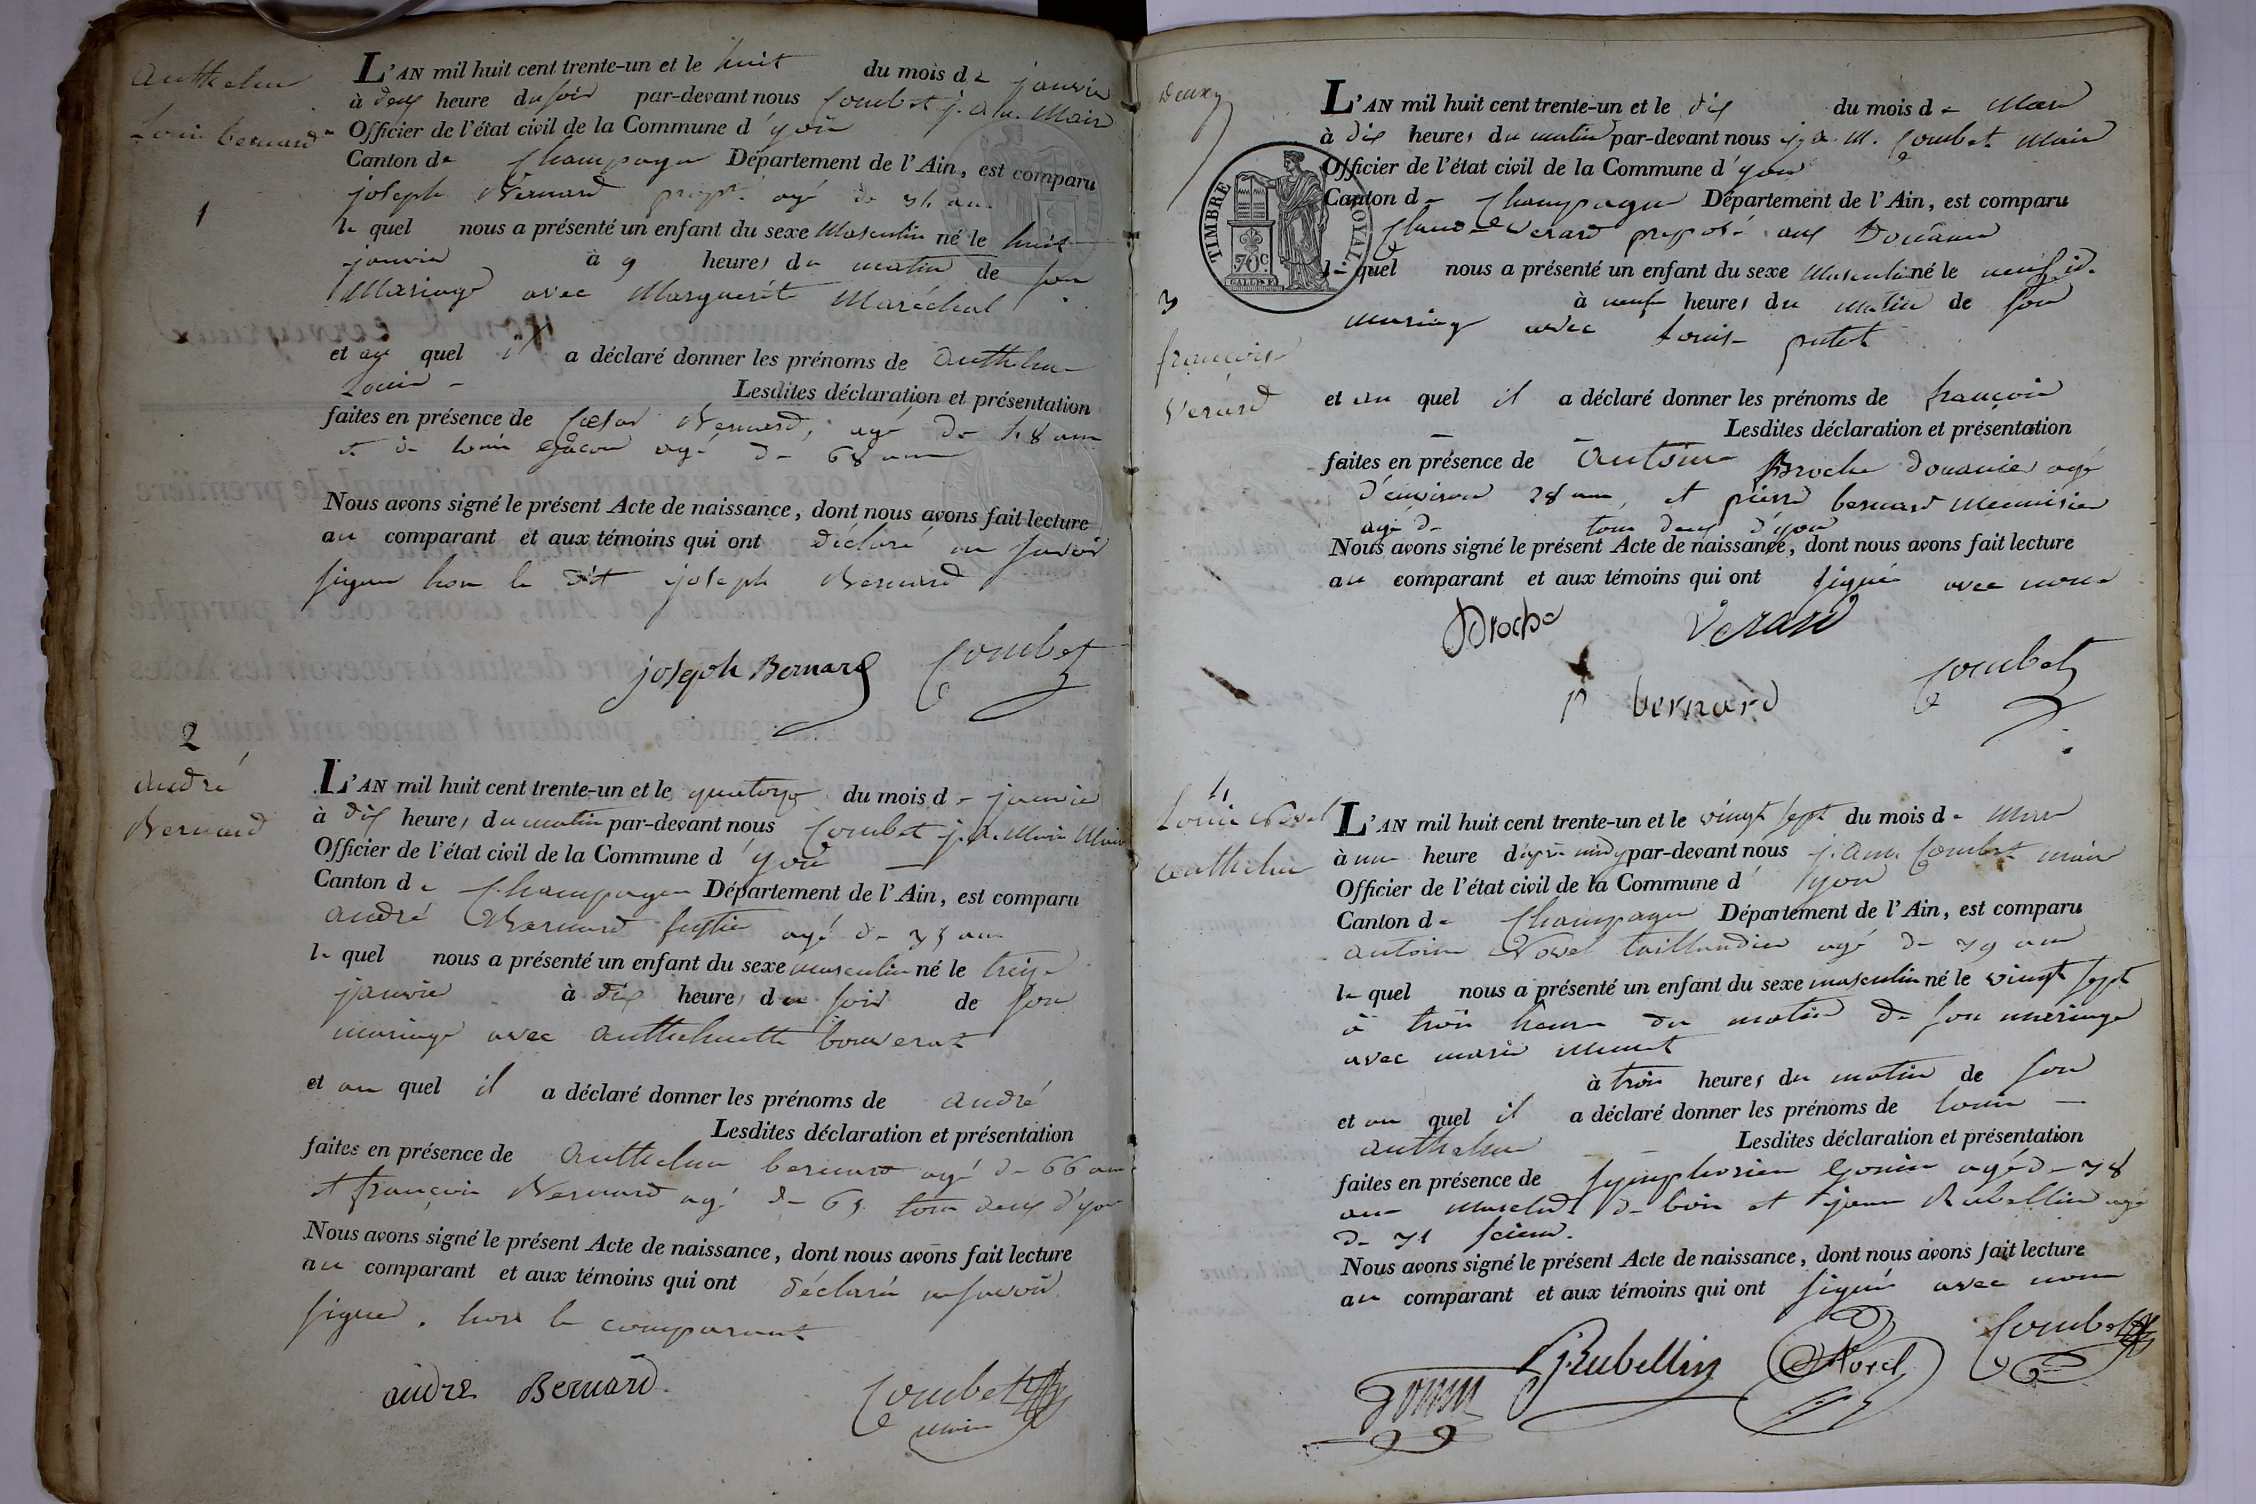 Anthelme
Louis bernard
1
L'AN mil huit cent trente-un et le huit du mois de janvier
à deux heure du soir par-devant nous Combet j. a. m. Maire
Officier de l'état civil de la Commune d'yon
Canton de Champagne Département de l'Ain, est comparu
joseph Bernard propre. agé de ans
le quel nous a présenté un enfant du sexe Masculin né le huit
janvier à 9 heures du matin de son
Mariage avec Marguerit Maréchal
et au quel il a déclaré donner les prénoms de anthelme
Louis - Lesdites déclaration et présentation
faites en présence de Cæsar Bernard, agé de 48 ans
et de louis agé de 68 ans
Nous avons signé le présent Acte de naissance, dont nous avons fait lecture
au comparant et aux témoins qui ont déclaré ne savoir
signer hors le dit joseph Bernard
joseph Bernard Combet
2
andré
Bernard
L'AN mil huit cent trente-un et le quatorze du mois de janvier
à dix heures du matin par-devant nous Combet j. a. Marie Maire
Officier de l'état civil de la Commune d'yon
Canton de Champagne Département de l'Ain, est comparu
andré Bernard agé de 35 ans
le quel nous a présenté un enfant du sexe masculin né le treize
janvier à dix heures du soir de son
mariage avec anthelmette bouverat
et au quel il a déclaré donner les prénoms de andré
Lesdites déclaration et présentation
faites en présence de anthelme bernard agé de 66 ans
et françois Bernard agé de 65 tous deux d'yon
Nous avons signé le présent Acte de naissance, dont nous avons fait lecture
au comparant et aux témoins qui ont déclaré ne savoir
signer. hors le comparant
andre Bernard Combet
Maire
Deux
TIMBRE ROYAL
70 C
3
françois
Verard
L'AN mil huit cent trente-un et le dix du mois de Mars
à dix heures du matin par-devant nous j. a. M. Combet Maire
Officier de l'état civil de la Commune d'yon
Canton de Champagne Département de l'Ain, est comparu
Claude Verard preposé aux Douanes
le quel nous a présenté un enfant du sexe Masculin né le neuf id.
à neuf heures du matin de son
mariage avec Louise putet
et au quel il a déclaré donner les prénoms de françois
Lesdites déclaration et présentation
faites en présence de antoine Broche douanier agé
d'environ 28 ans, et pierre bernard Menuisier
agé de tous deux d'yon
Nous avons signé le présent Acte de naissance, dont nous avons fait lecture
au comparant et aux témoins qui ont signé avec nous
Broche Verard
p bernard Combet
4
Louis Novel
anthelme
L'AN mil huit cent trente-un et le vingt sept du mois de Mars
à une heure d'après midy par-devant nous j. am. Combet maire
Officier de l'état civil de la Commune d'yon
Canton de Champagne Département de l'Ain, est comparu
antoine Novel taillandier agé de 39 ans
le quel nous a présenté un enfant du sexe masculin né le vingt sept
à trois heures du matin de son mariage
avec marie
à trois heures du matin de son
et au quel il a déclaré donner les prénoms de louis -
anthelme Lesdites déclaration et présentation
faites en présence de symphorien Gonin agé de 38
ans Marchd. de bois et jean Rubellin agé
de 31 scieur.
Nous avons signé le présent Acte de naissance, dont nous avons fait lecture
au comparant et aux témoins qui ont signé avec nous
Gonin J Rubellin Novel Combet